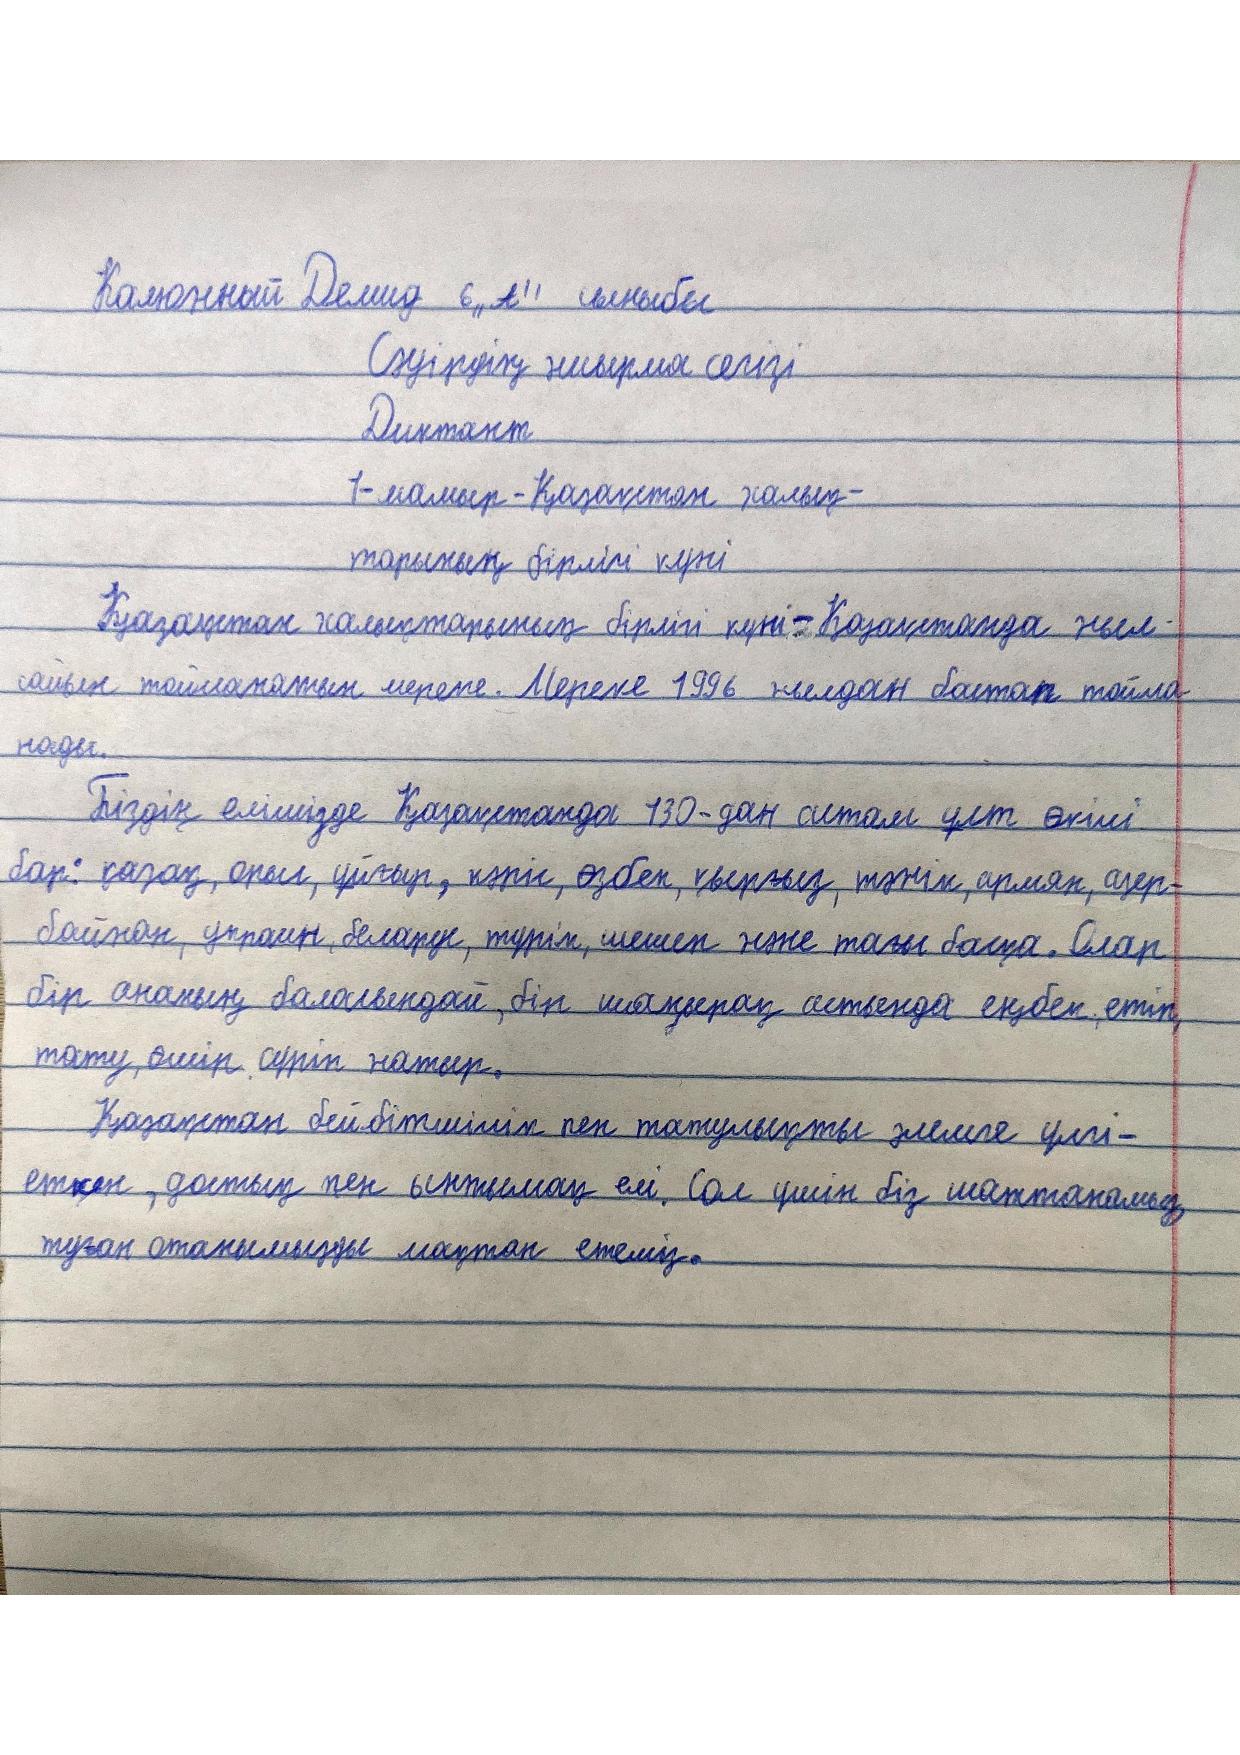 Калюжный Демид 6 „А" сыныбы
Сәуірдің жиырма сегізі
Диктант
1-мамыр-Қазақстан халық-
тарының бірлігі күні
Қазақстан халықтарының бірлігі күні-Қазақстанда жыл-
сайын тойланатын мереке. Мереке 1996 жылдан бастап тойла
нады.
Біздің елімізде Қазақстанда 130-дан астам ұлт өкілі
бар: қазақ, орыс, ұйғыр, кәріс, өзбек, қырғыз, тәжік, армян, әзер-
байжан, украин, беларус, түрік, шешен және тағы басқа. Олар
бір ананың баласындай, бір шаңырақ астында еңбек етіп,
тату, өмір сүріп жатыр.
Қазақстан бейбітшілік пен татулықты әлемге үлгі-
еткен, достық пен ынтымақ елі. Сол үшін біз шаттанамыз,
туған отанымызды мақтан етеміз.